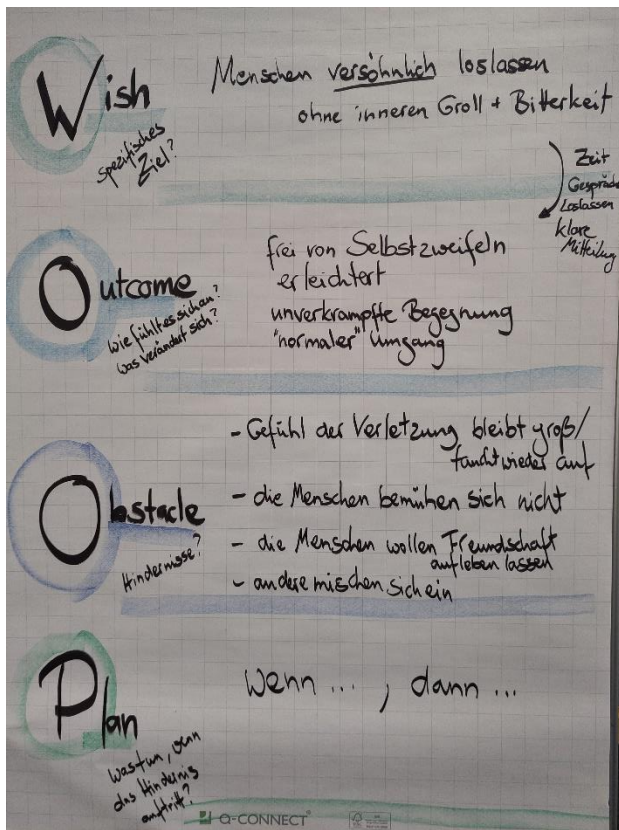 Wish
spezifisches
Ziel?
Menschen versöhnlich loslassen
ohne inneren Groll + Bitterkeit
Zeit
Gespräch
Loslassen
klare
Mitteilung
Outcome
Wie fühlt es sich an?
Was verändert sich?
frei von Selbstzweifeln
erleichtert
unverkrampfte Begegnung
"normaler" Umgang
Obstacle
Hindernisse?
- Gefühl der Verletzung bleibt groß/
taucht wieder auf
- die Menschen bemühen sich nicht
- die Menschen wollen Freundschaft
aufleben lassen
- andere mischen sich ein
Plan
Was tun, wenn
das Hindernis
auftritt?
Wenn ... , dann ...
Q-CONNECT